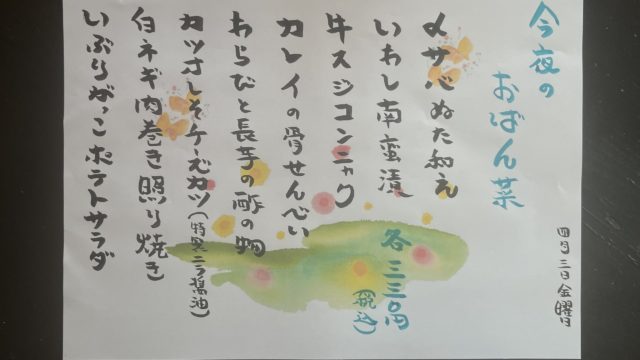 今夜の
おばん菜
四月三日 金曜日
〆サバぬた和え
いわし南蛮漬
牛スジコンニャク
カレイの骨せんべい
わらびと長芋の酢の物
カツオしそチーズカツ(特製ニラ醤油)
白ネギ肉巻き照り焼き
いぶりがっこポテトサラダ
各三三〇円
(税込)